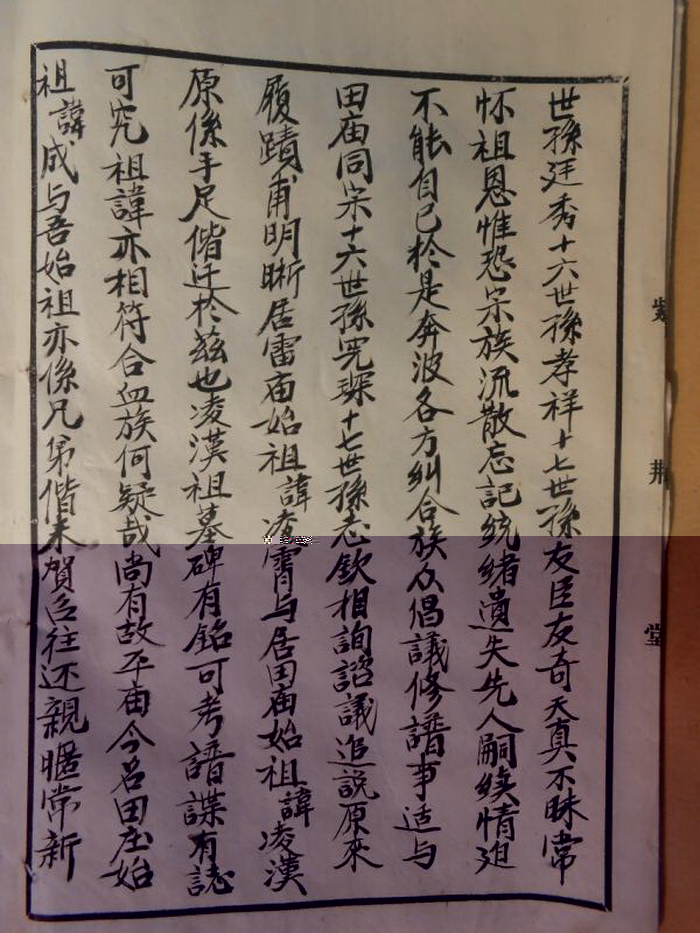 世孫廷秀十六世孫孝祥十七世孫友臣友奇天真不昧常
怀祖恩惟恐宗族流散忘記統緒遺失先人嗣续情廹
不能自已於是奔波各方糾合族众倡議修譜事适与
田庙同宗十六世孫宪琛十七世孫志欽相詢諮議追説原來
履蹟甫明晰居雷庙始祖諱凌霄与居田庙始祖諱凌漢
原係手足偕迁於兹也凌漢祖墓碑有銘可考譜諜有誌
可究祖諱亦相符合血族何疑哉尚有故平庙今名田庄始
祖諱成与吾始祖亦係兄弟偕来賀呂往还親暱常新
紫荆堂